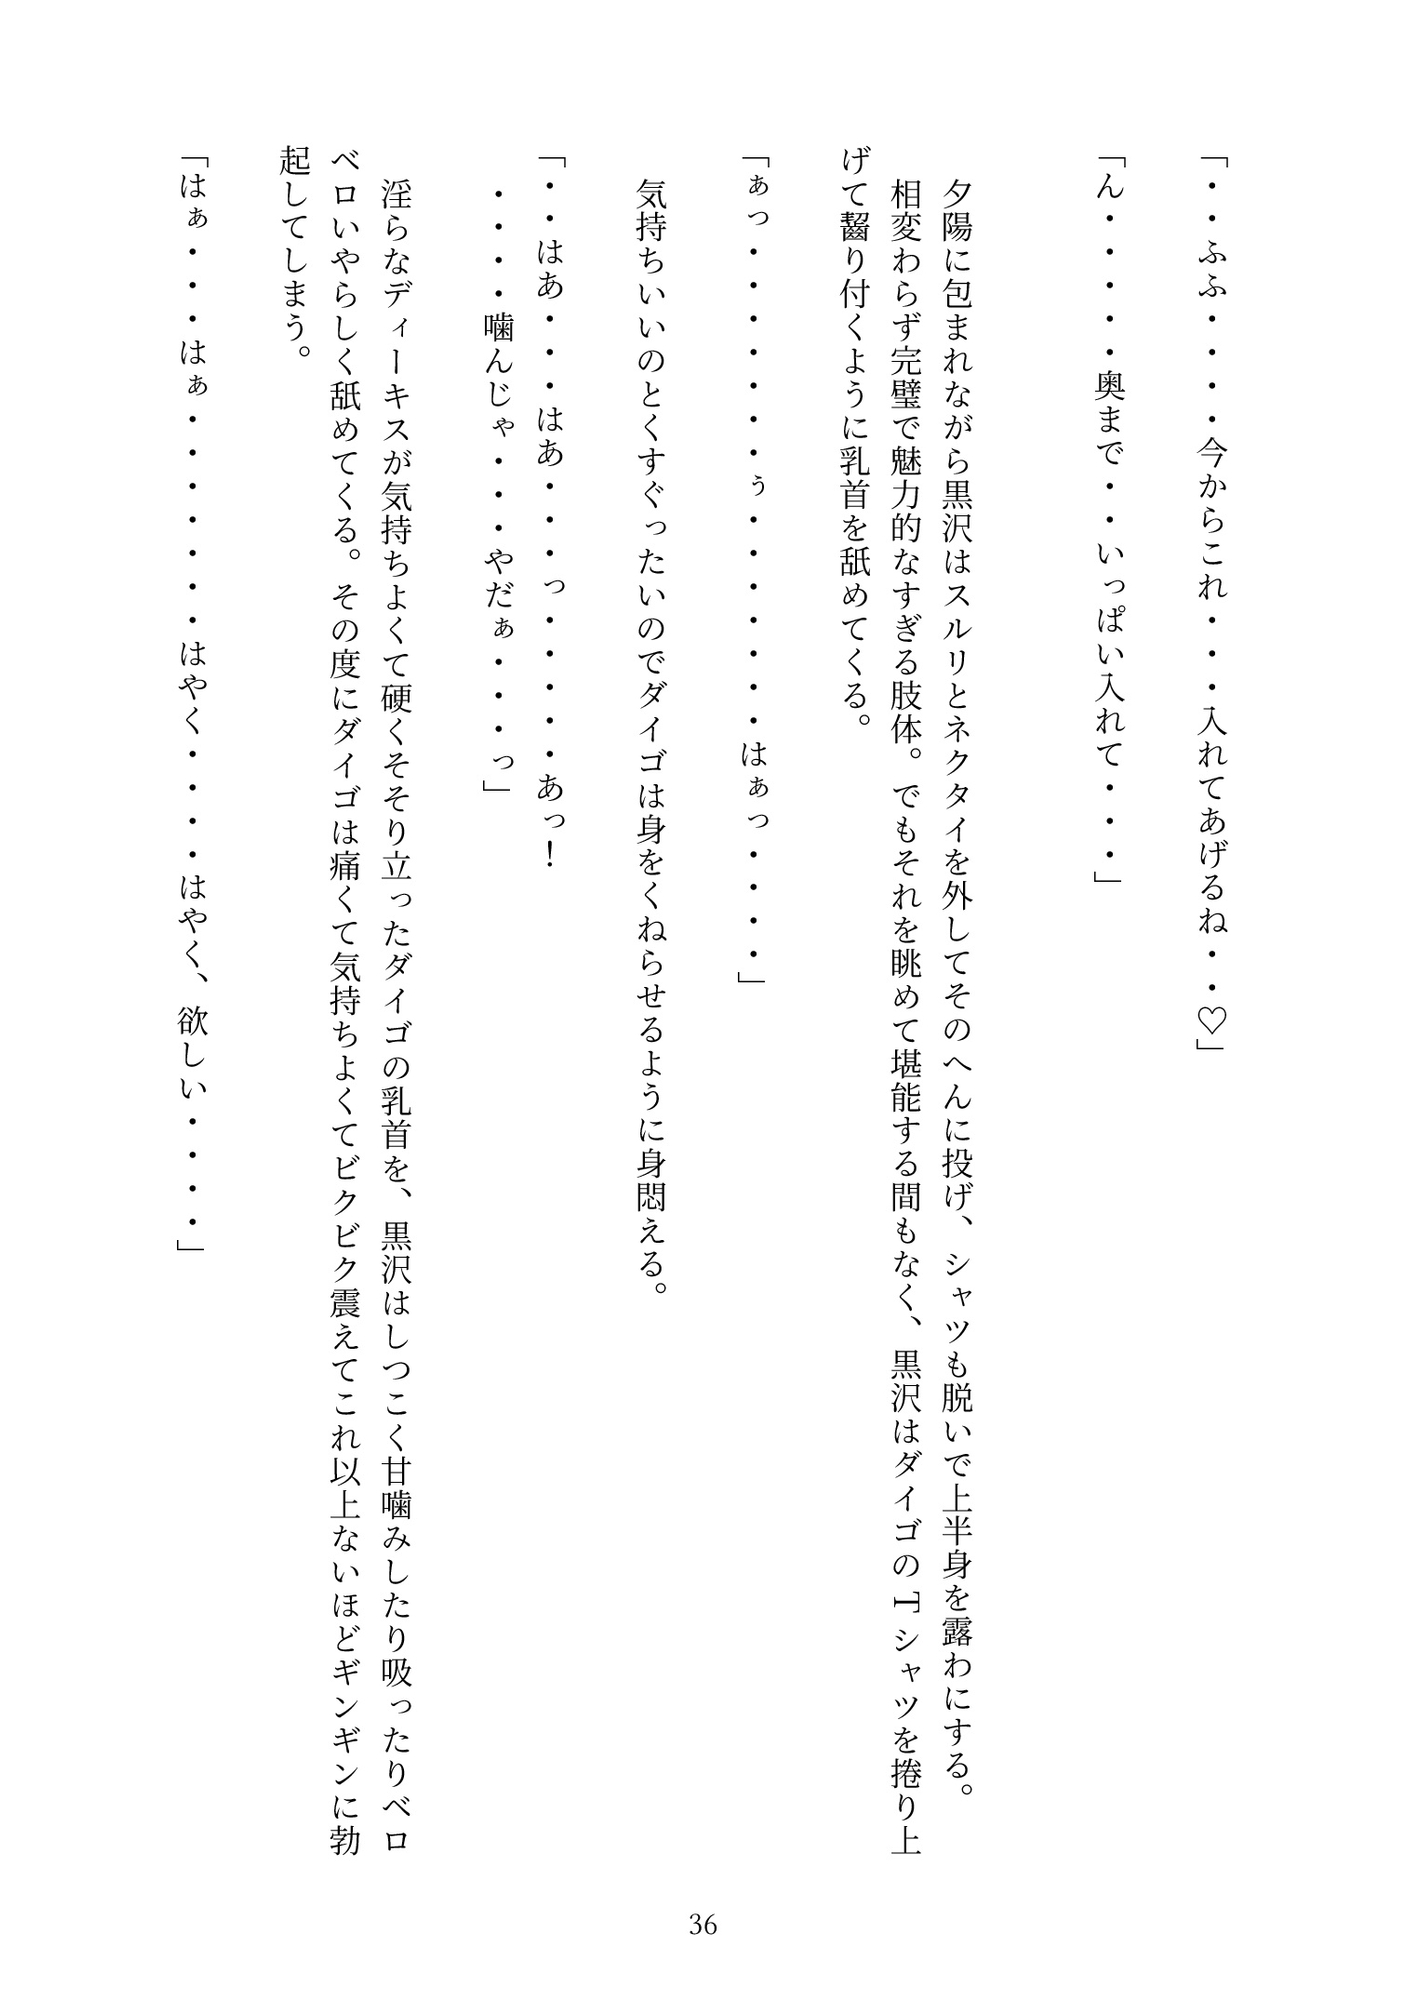 「・・ふふ・・・・今からこれ・・・入れてあげるね・・♡」
「ん・・・・・奥まで・・いっぱい入れて・・・」
夕陽に包まれながら黒沢はスルリとネクタイを外してそのへんに投げ、シャツも脱いで上半身を露わにする。
相変わらず完璧で魅力的なすぎる肢体。でもそれを眺めて堪能する間もなく、黒沢はダイゴのTシャツを捲り上
げて齧り付くように乳首を舐めてくる。
「ぁっ・・・・・・・ぅ・・・・・・・はぁっ・・・・」
気持ちいいのとくすぐったいのでダイゴは身をくねらせるように身悶える。
「・・はあ・・・はあ・・・・・っ・・・・・あっ！
・・・・噛んじゃ・・・やだぁ・・・っ」
淫らなディーキスが気持ちよくて硬くそそり立ったダイゴの乳首を、黒沢はしつこく甘噛みしたり吸ったりベロ
ベロいやらしく舐めてくる。その度にダイゴは痛くて気持ちよくてビクビク震えてこれ以上ないほどギンギンに勃
起してしまう。
「はぁ・・・はぁ・・・・・・・はやく・・・・はやく、欲しい・・・・」
36